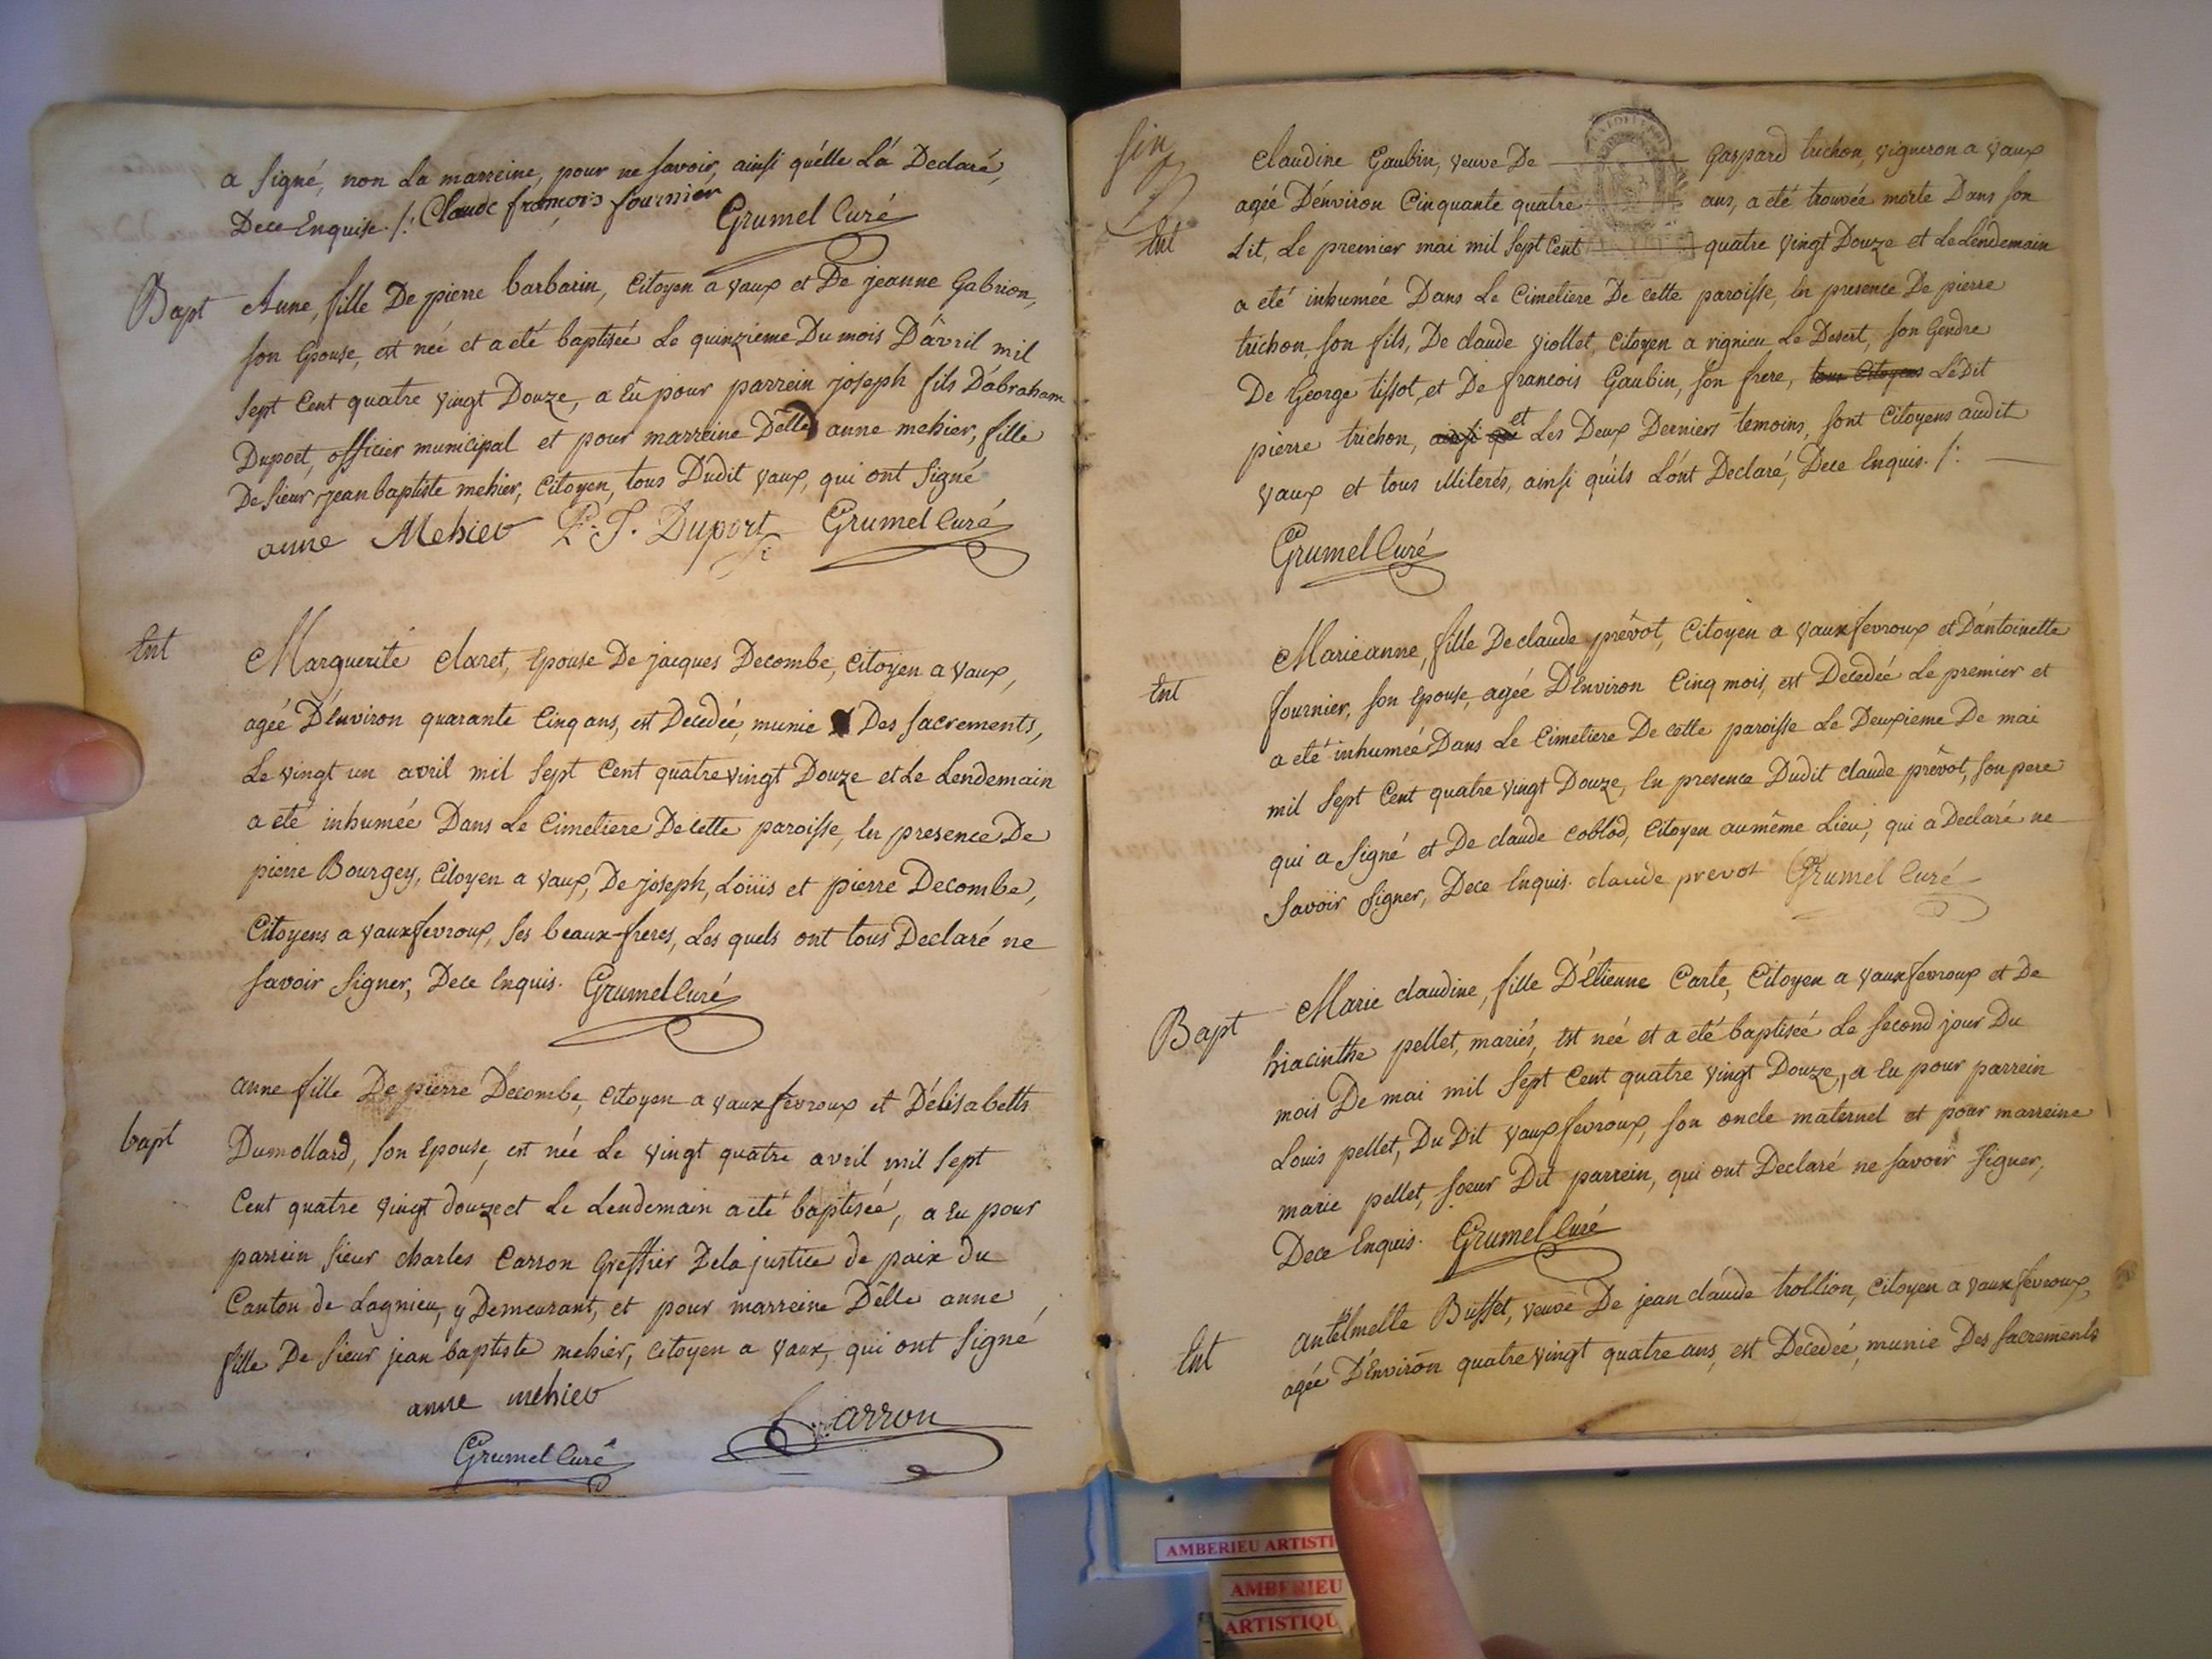 a signé, non La marreine, pour ne savoir, ainsi qu'elle L'a Declaré,
Dece Enquise /: Claude françois fournier Grumel Curé
Bapt Anne, fille De pierre barbarin, Citoyen a vaux et De jeanne Gabrion,
son Epouse, est née et a eté baptisée Le quinzieme Du mois D'avril mil
sept Cent quatre vingt Douze, a Eu pour parrein joseph fils D'abraham
Duport, officier municipal et pour marreine Delle anne mehier, fille
De sieur jean baptiste mehier, Citoyen, tous Dudit vaux, qui ont signé
anne Mehier P. J. Duport Grumel Curé
Ent Marguerite Claret, Epouse De jacques Decombe, Citoyen a vaux,
agée D'Environ quarante Cinq ans, est Decedée, munie Des sacrements,
Le vingt un avril mil sept Cent quatre vingt Douze et Le Lendemain
a eté inhumée Dans Le Cimetiere De cette paroisse, En presence De
pierre Bourgey, Citoyen a vaux, De joseph, Loüis et pierre Decombe,
Citoyens a vauxfevroux, ses beaux-freres, Les quels ont tous Declaré ne
savoir signer, Dece Enquis. Grumel Curé
anne fille De pierre Decombe, Citoyen a vauxfevroux et D'élisabeth
bapt Dumollard, son Epouse, est née Le vingt quatre avril mil sept
Cent quatre vingt douze et Le Lendemain a été baptisée, a Eu pour
parrein sieur charles Carron Greffier De la justice de paix du
Canton de Lagnieu, y Demeurant, et pour marreine Delle anne
fille De sieur jean baptiste mehier, Citoyen a vaux, qui ont signé
anne mehier
Carron
Grumel Curé
Claudine Gaubin, veuve De Gaspard trichon, vigneron a vaux
agée D'environ Cinquante quatre ans, a eté trouvée morte Dans son
Ent Lit, Le premier mai mil sept Cent quatre vingt Douze et Le Lendemain
a eté inhumée Dans Le Cimetiere De cette paroisse, En presence De pierre
trichon, son fils, De claude viollet, Citoyen a rignieu Le Desert, son Gendre
De George tissot, et De francois Gaubin, son frere, tous Citoyens LeDit
pierre trichon, ainsi que et Les Deux Derniers temoins, sont Citoyens audit
vaux et tous illiterés, ainsi qu'ils L'ont Declaré, Dece Enquis. /:
Grumel Curé
Marieanne, fille De claude prévot, Citoyen a vauxfevroux et D'antoinette
Ent fournier, son Epouse, agée D'Environ Cinq mois, est Decedée Le premier et
a eté inhumée Dans Le Cimetiere De cette paroisse Le Deuxieme De mai
mil sept Cent quatre vingt Douze, En presence Dudit claude prévot, son pere
qui a signé et De claude coblod, Citoyen au même Lieu, qui a Declaré ne
savoir signer, Dece Enquis. claude prevot Grumel Curé
Marie claudine, fille D'Etienne Carte, Citoyen a vauxfevroux et De
Bapt hiacinthe pellet, mariés, est née et a eté baptisée Le second jour Du
mois De mai mil sept Cent quatre vingt Douze, a Eu pour parrein
Louis pellet, Du Dit vauxfevroux, son oncle maternel et pour marreine
marie pellet, soeur Dit parrein, qui ont Declaré ne savoir signer,
Dece Enquis. Grumel Curé
antelmelle Buffet, veuve De jean claude trollion, Citoyen a vauxfevroux,
Ent agée D'Environ quatre vingt quatre ans, est Decedée, munie Des sacrements
AMBERIEU ARTISTI
AMBERIEU
ARTISTIQU